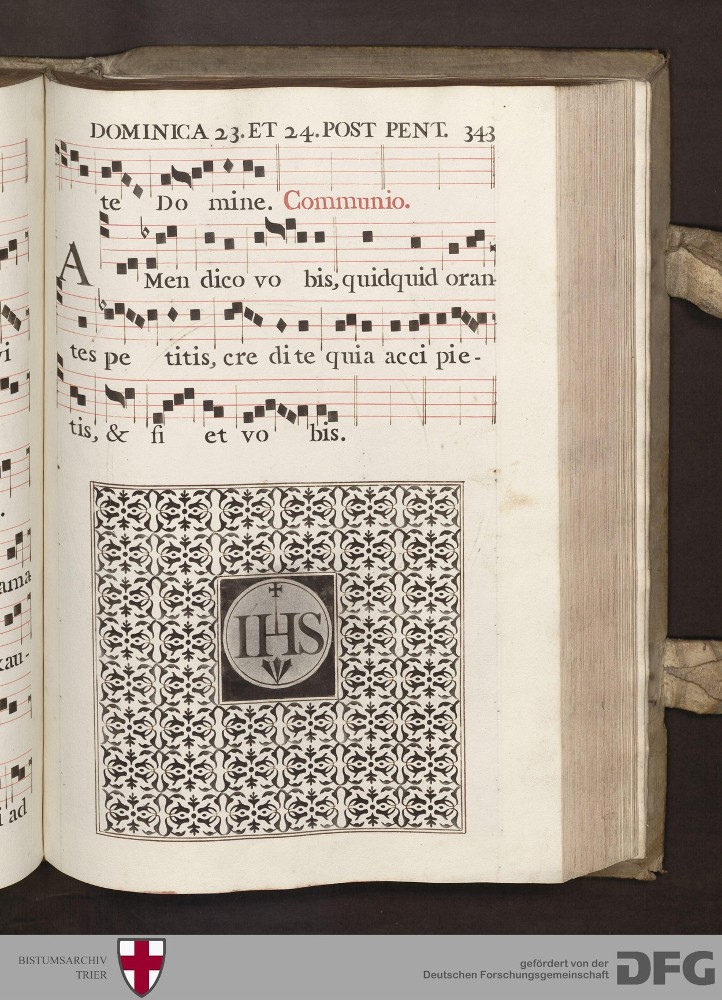 DOMINICA 23. ET 24. POST PENT. 343
te Do mine. Communio.
AMen dico vo bis, quidquid oran-
tes pe titis, cre dite quia acci pie-
tis, & fi et vo bis.
IHS
vi
ama
xau-
i ad
BISTUMSARCHIV
TRIER
gefördert von der
Deutschen Forschungsgemeinschaft
DFG